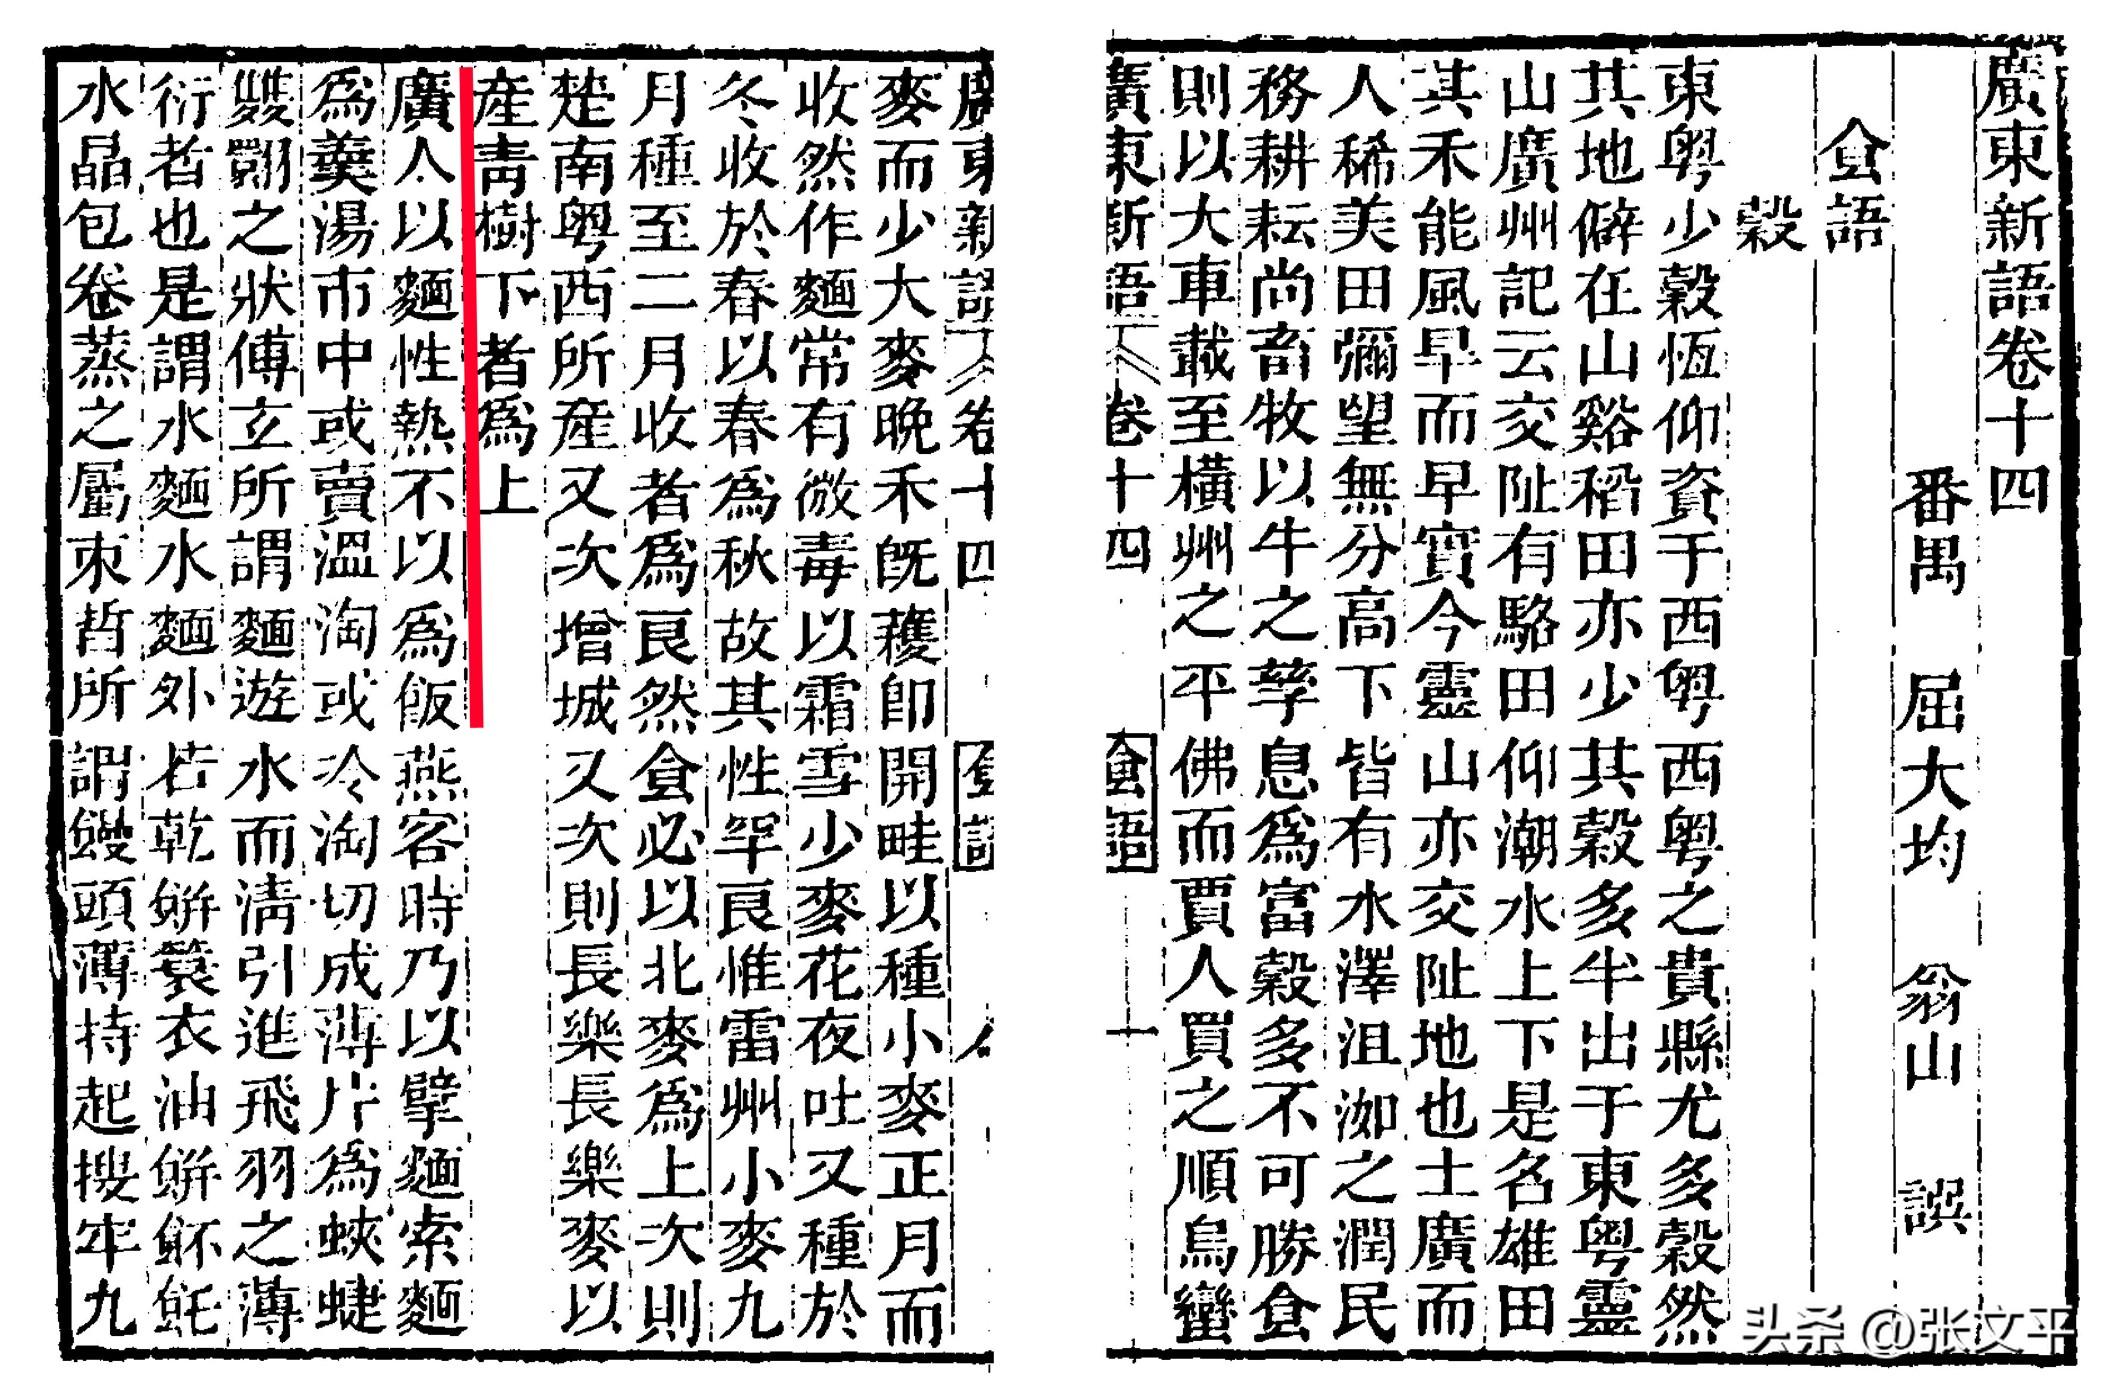 廣東新語卷十四
番禺 屈大均 翁山 譔
食語
穀
東粤少穀恆仰資于西粤西粤之貴縣尤多穀然
其地僻在山谿稻田亦少其穀多半出于東粤靈
山廣州記云交阯有駱田仰潮水上下是名雄田
其禾能風旱而早實今靈山亦交阯地也土廣而
人稀美田彌望無分高下皆有水澤沮洳之潤民
務耕耘尚畜牧以牛之孳息爲富穀多不可勝食
則以大車載至橫州之平佛而賈人買之順烏蠻
廣東新語 卷十四 食語 一
廣東新語 卷十四 食語
麥而少大麥晚禾旣穫卽開畦以種小麥正月而
收然作麵常有微毒以霜雪少麥花夜吐又種於
冬收於春以春爲秋故其性罕良惟雷州小麥九
月種至二月收者爲良然食必以北麥爲上次則
楚南粤西所産又次增城又次則長樂長樂麥以
産靑樹下者爲上
廣人以麵性熱不以爲飯燕客時乃以擘麵索麵
爲羹湯市中或賣溫淘或冷淘切成薄片爲蛺蜨
雙翾之狀傅玄所謂麵遊水而淸引進飛羽之薄
衍者也是謂水麵水麵外若乾餠簑衣油餠𩚁飥
水晶包卷蒸之屬束晳所謂饅頭薄持起搜牢九
头条 @张文平